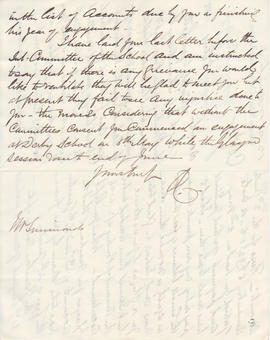 in the list of Accounts due by you in finishing
his year of engagement.
I have laid your last letter before the
Sub-Committee of the School and am instructed
to say that if there is any Grievance you would
like to ventilate they will be glad to meet you but
at present they fail to see any injustice done to
you - the more so considering that without the
Committee's Consent you Commenced an engagement
at Derby School on 5th May while the Glasgow
session not end of June
Yours truly
Mr Simmonds